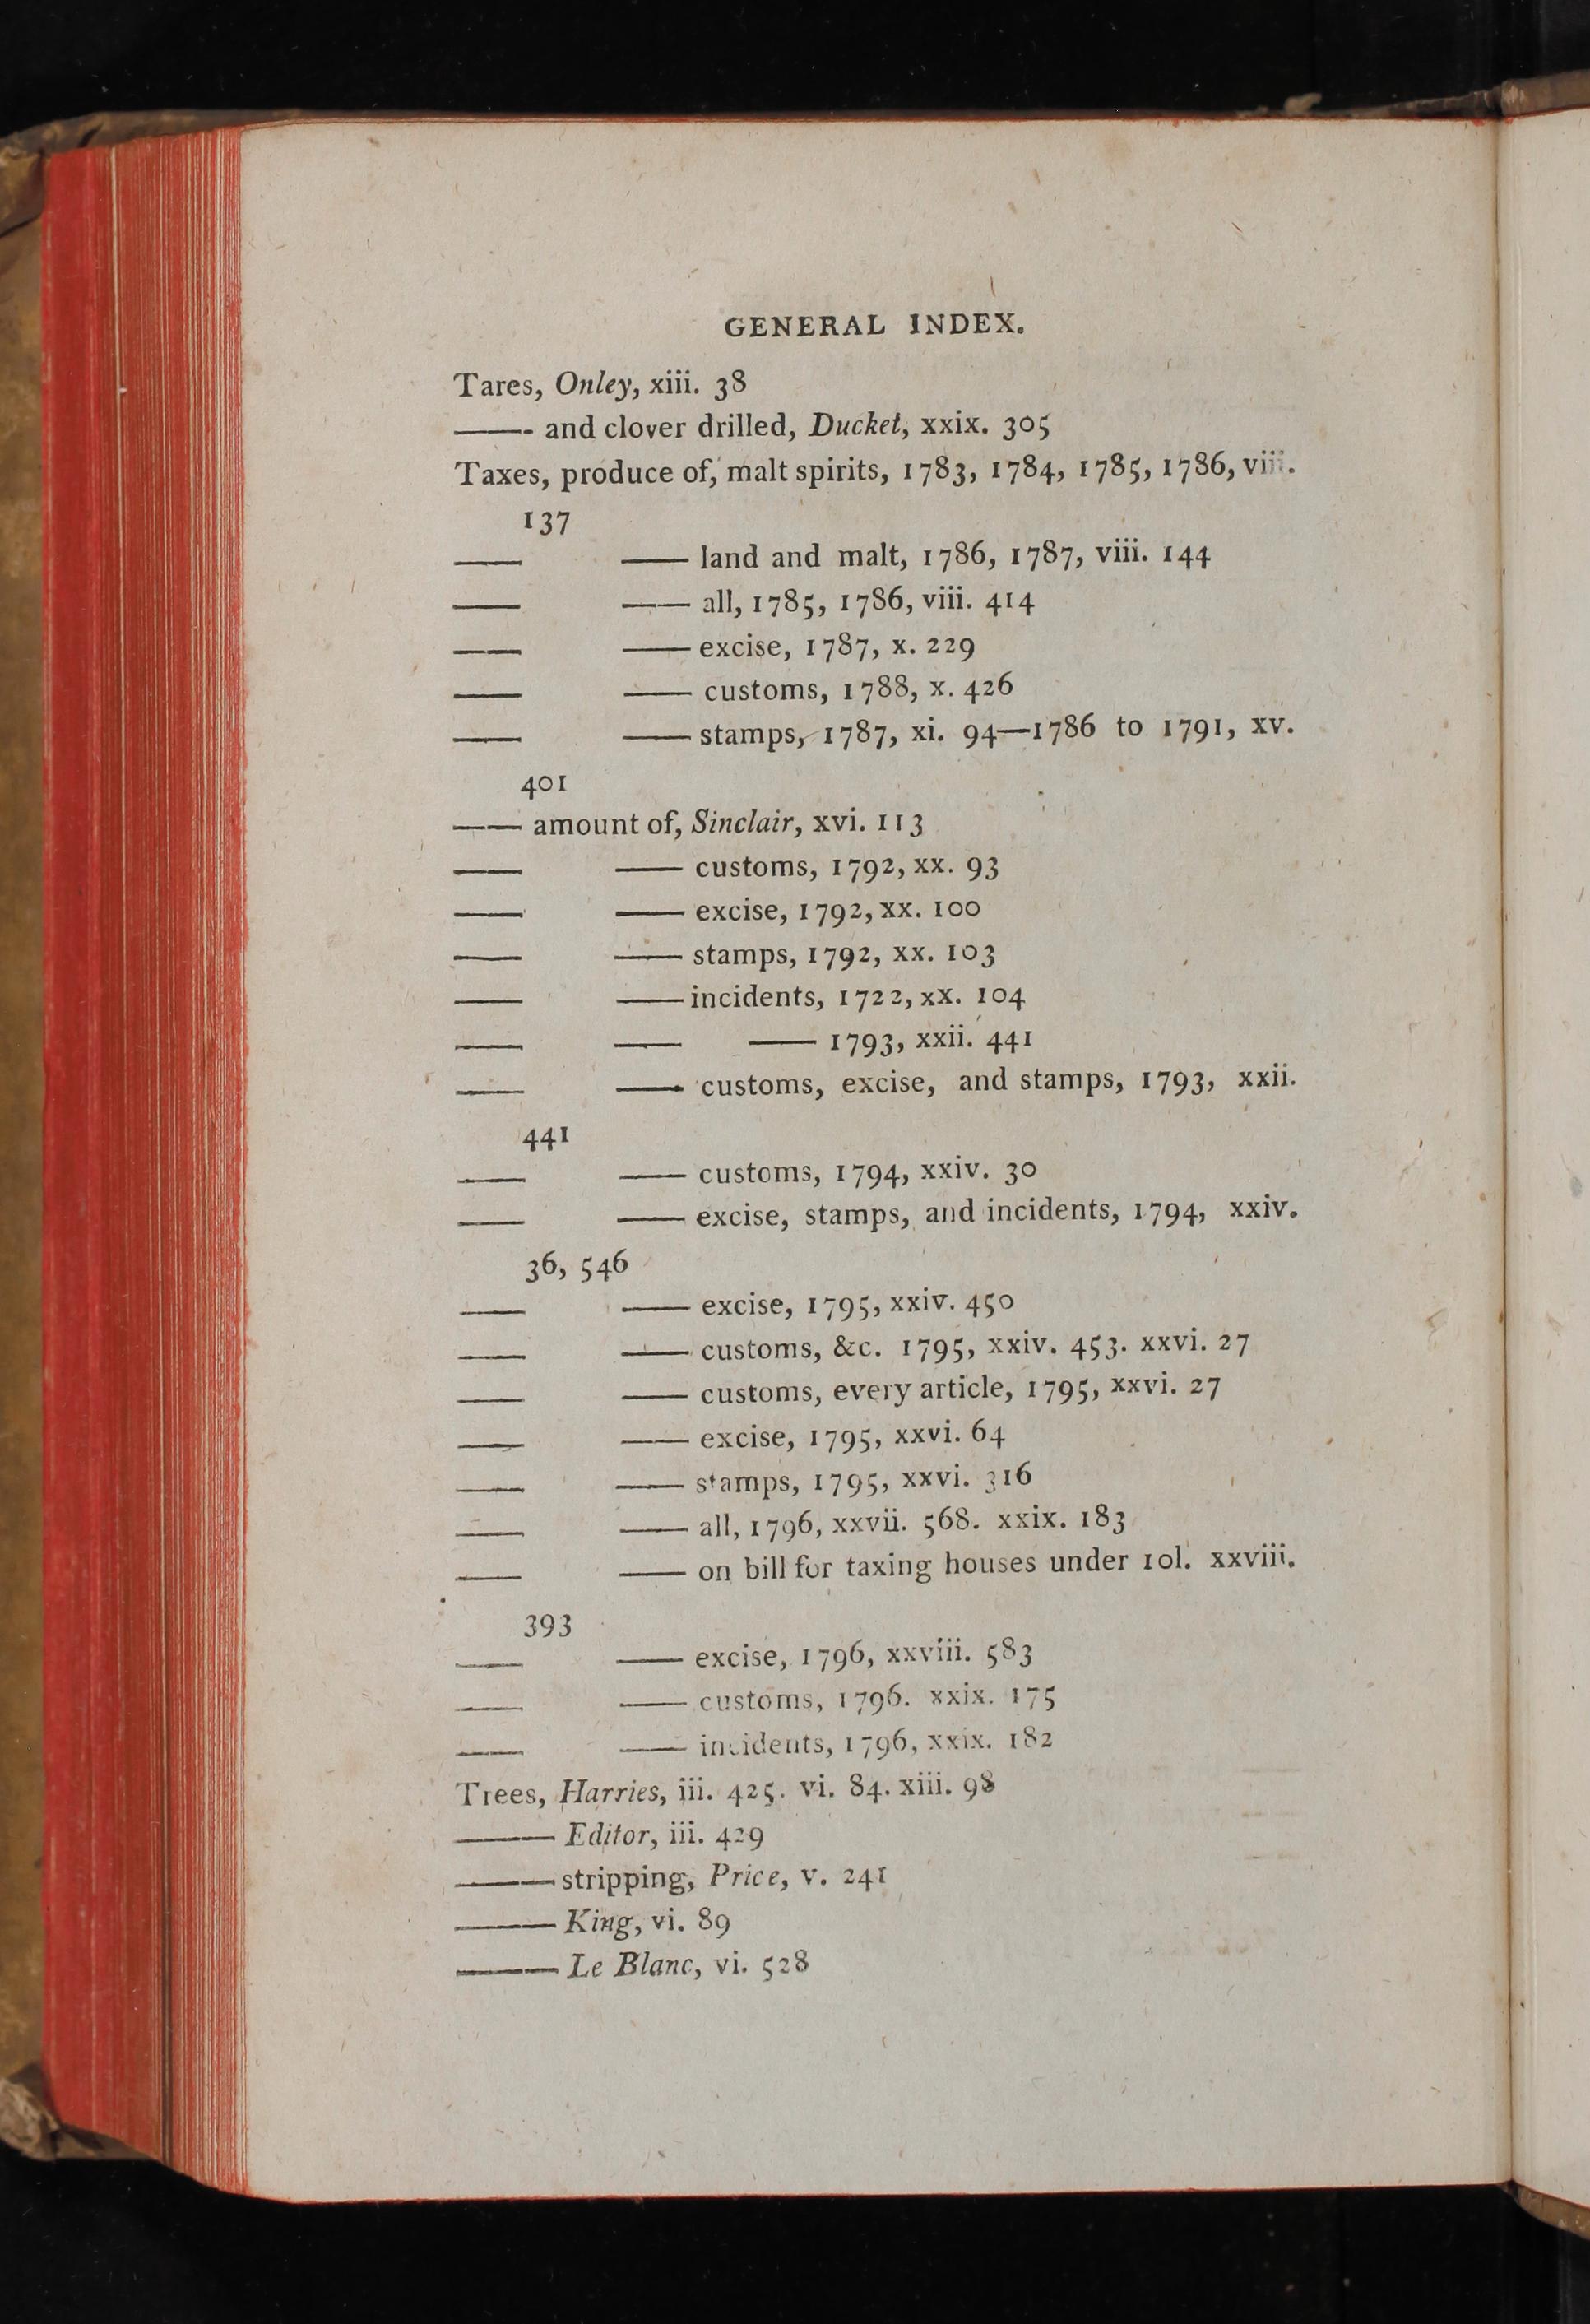 GENERAL INDEX.
Tares, Onley, xiii. 38
——- and clover drilled, Ducket, xxix. 305
Taxes, produce of, malt spirits, 1783, 1784, 1785, 1786, viii.
137
—— —— land and malt, 1786, 1787, viii. 144
—— —— all, 1785, 1786, viii. 414
—— —— excise, 1787, x. 229
—— —— customs, 1788, x. 426
—— —— stamps, 1787, xi. 94—1786 to 1791, xv.
401
—— amount of, Sinclair, xvi. 113
—— —— customs, 1792, xx. 93
—— —— excise, 1792, xx. 100
—— —— stamps, 1792, xx. 103
—— —— incidents, 1722, xx. 104
—— —— —— 1793, xxii. 441
—— —— customs, excise, and stamps, 1793, xxii.
441
—— —— customs, 1794, xxiv. 30
—— —— excise, stamps, and incidents, 1794, xxiv.
36, 546
—— —— excise, 1795, xxiv. 450
—— —— customs, &c. 1795, xxiv. 453. xxvi. 27
—— —— customs, every article, 1795, xxvi. 27
—— —— excise, 1795, xxvi. 64
—— —— stamps, 1795, xxvi. 316
—— —— all, 1796, xxvii. 568. xxix. 183
—— —— on bill for taxing houses under 10l. xxviii.
393
—— —— excise, 1796, xxviii. 583
—— —— customs, 1796. xxix. 175
—— —— incidents, 1796, xxix. 182
Trees, Harries, iii. 425. vi. 84. xiii. 98
——— Editor, iii. 429
——— stripping, Price, v. 241
——— King, vi. 89
——— Le Blanc, vi. 528